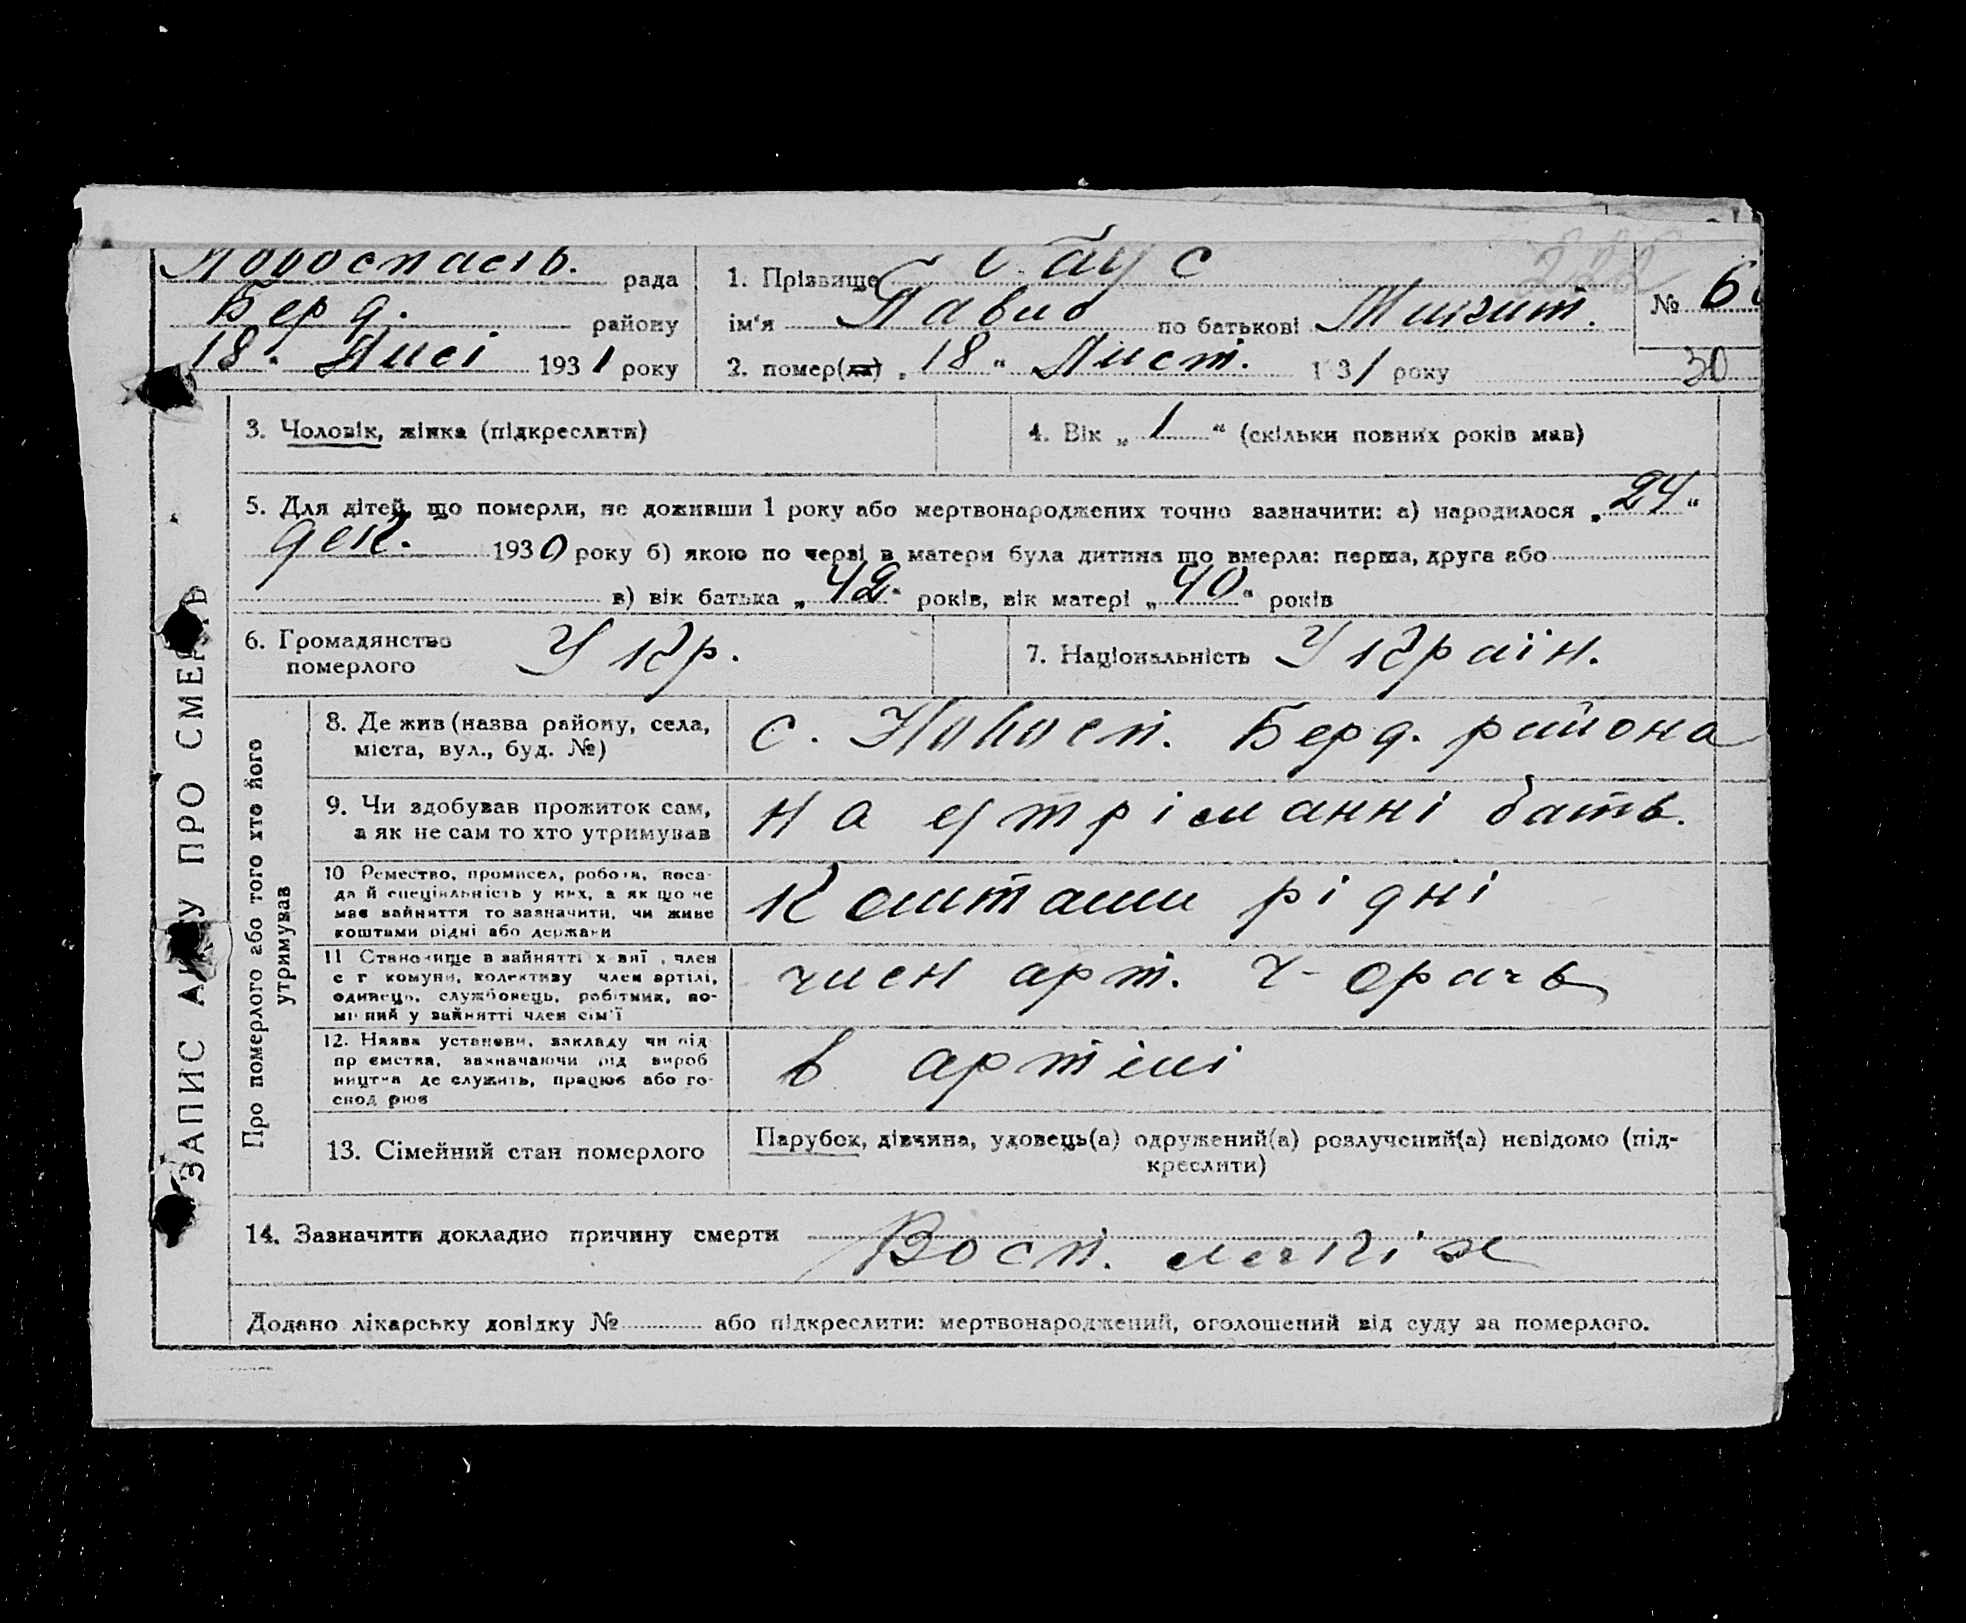 Новоспасів. рада
Берд. району
18 " Лист 1931 року
1. Прізвище
ім'я Павло по батькові Микит.
2. помер(ла) „ 18 " Лист. 1931 року
222
№ 6
30
ЗАПИС АКТУ ПРО СМЕРТЬ
3. Чоловік, жінка (підкреслити)
4. Вік „ 1 " (скільки повних років мав)
5. Для дітей, що померли, не доживши 1 року або мертвонароджених точно зазначити: а) народилося „ 24 "
дек. 1930 року б) якою по черві в матери була дитина що вмерла: перша, друга або
в) вік батька „ 42 " років, вік матері „ 40 " років
6. Громадянство
померлого Укр.
7. Національність Україн.
Про померлого або того хто його
утримував
8. Де жив (назва району, села,
міста, вул., буд. №)
с. Новосп. Берд. района
9. Чи здобував прожиток сам,
а як не сам то хто утримував
на утріманні батьк.
10 Ремество, промисел, робота, поса-
да й спеціяльність у них, а як що не
має зайняття то зазначити, чи живе
коштами рідні або держави
Коштами рідні
11 Становище в зайнятті, член
с г комуни, колективу член артілі,
одинець, службовець, робітник, по-
мічний у зайнятті член сім'ї
член арт. Ч-орачь
12. Назва установи, закладу чи під
пр ємства, зазначаючи рід вироб
ництва де служить, працює або го-
спод рює
в артілі
13. Сімейний стан померлого
Парубок, дівчина, удовець(а) одружений(а) розлучений(а) невідомо (під-
креслити)
14. Зазначити докладно причину смерти Восп. легкіх
Додано лікарську довідку № або підкреслити: мертвонароджений, оголошений від суду за померлого.